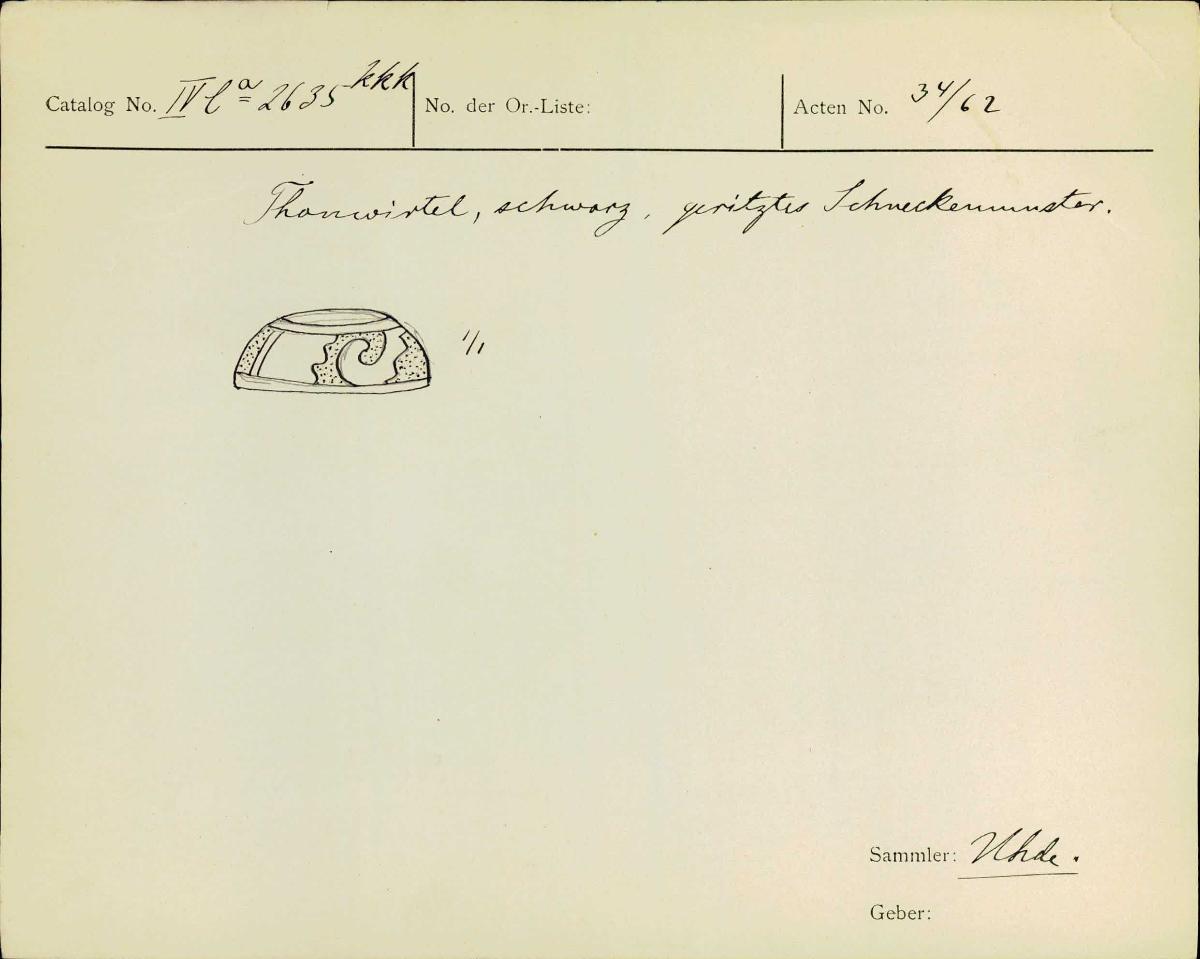 Catalog No. IV Ca 2635 kkk No. der Or.-Liste: Acten No. 34/62
Thonwirtel, schwarz, geritztes Schneckenmuster.
1/1
Sammler: Uhde.
Geber: